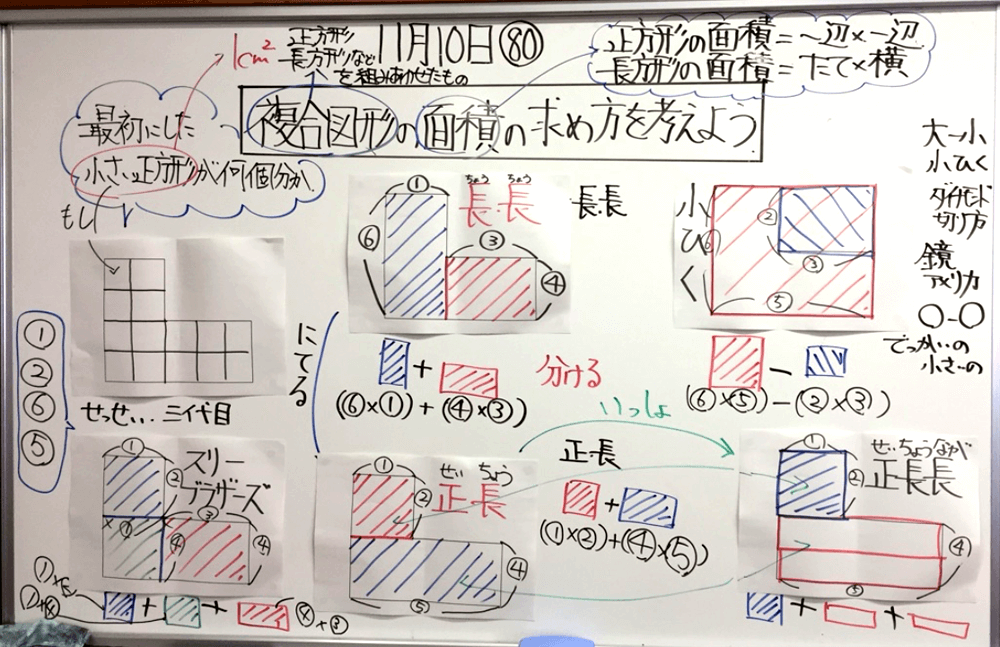 1cm²
正方形
長方形など
を組みあわせたもの
11月10日 80
正方形の面積=一辺×一辺
長方形の面積=たて×横
複合図形の面積の求め方を考えよう
最初にした
小さい正方形が何個分か
もし
①
②
⑥
⑤
せっせい... 三代目
にてる
①
⑥
ちょう ちょう
長 長
③
④
長.長
+
分ける
(⑥×①)+(④×③)
小ひく
⑥
②
③
⑤
−
(⑥×⑤)−(②×③)
大−小
小ひく
ダイヤモンド
切り方
鏡
アメリカ
〇−〇
でっかいの
小さーの
①
②
スリー
ブラザーズ
③
④
④
+ +
①
②
せい ちょう
正 長
④
⑤
いっしょ
正.長
+
(①×②)+(④×⑤)
①
②
せいちょうなが
正長長
④
⑤
+ +